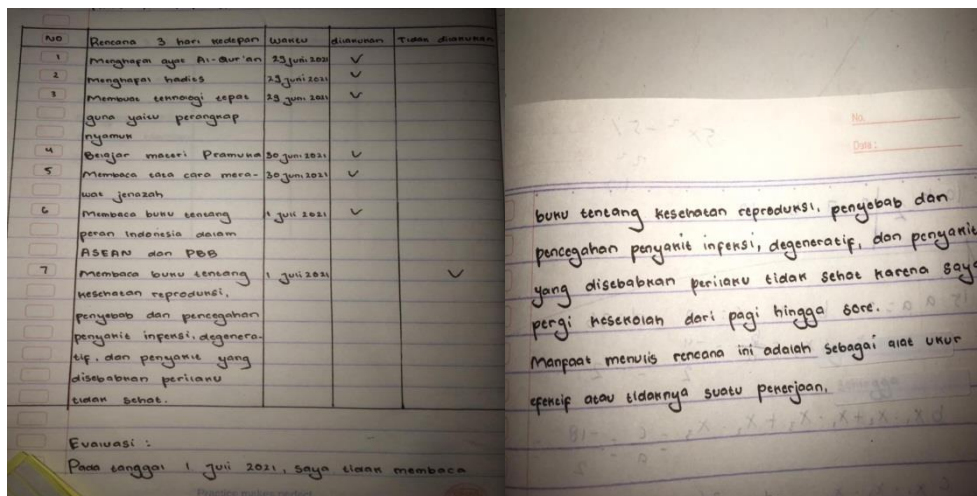 NO Rencana 3 hari kedepan Waktu dilakukan Tidak dilakukan
1 Menghapal ayat Al-Qur'an 29 Juni 2021 ✓
2 Menghapal hadies 29 Juni 2021 ✓
3 Membuat teknologi tepat 29 Juni 2021 ✓
guna yaitu perangkap
nyamuk
4 Belajar materi Pramuka 30 Juni 2021 ✓
5 Membaca tata cara mera- 30 Juni 2021 ✓
wat jenazah
6 Membaca buku tentang 1 Juli 2021 ✓
peran Indonesia dalam
ASEAN dan PBB
7 Membaca buku tentang 1 Juli 2021 ✓
kesehatan reproduksi,
penyebab dan pencegahan
penyakit inpeksi, degenera-
tip, dan penyakit yang
disebabkan perilaku
tidak sehat.
Evaluasi :
Pada tanggal 1 Juli 2021, saya tidak membaca
No.
Date :
buku tentang kesehatan reproduksi, penyebab dan
pencegahan penyakit inpeksi, degeneratip, dan penyakit
yang disebabkan perilaku tidak sehat karena saya
pergi kesekolah dari pagi hingga sore.
Manpaat menulis rencana ini adalah sebagai alat ukur
epektip atau tidaknya suatu pekerjaan.